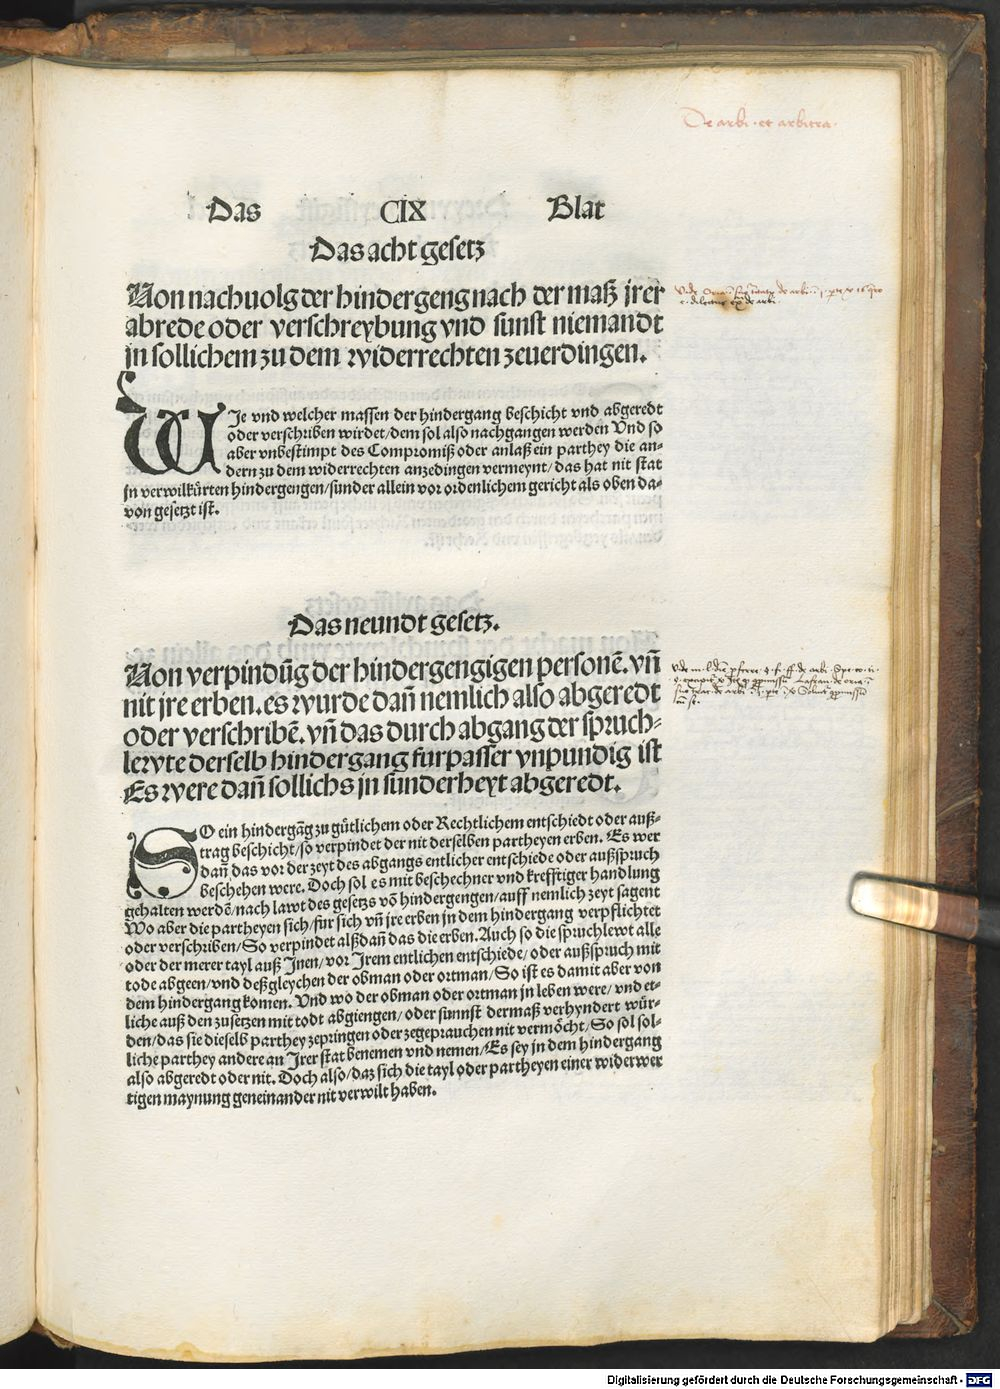 De arbi. et arbitra.
Das CIX Blat
Das acht gesetz
Von nachuolg der hindergeng nach der maß jrer
abrede oder verschreybung vnd sunst niemandt
jn sollichem zu dem widerrechten zeuerdingen.
WJe vnd welcher massen der hindergang beschicht vnd abgeredt
oder verschriben wirdet/dem sol also nachgangen werden Vnd so
aber vnbestimpt des Compromiß oder anlaß ein parthey die an-
dern zu dem widerrechten anzedingen vermeynt/das hat nit stat
jn verwilkürten hindergengen/sunder allein vor ordenlichem gericht als oben da-
von gesetzt ist.
Das neundt gesetz.
Von verpindūg der hindergengigen personē. vn̄
nit jre erben. es wurde dan̄ nemlich also abgeredt
oder verschribē. vn̄ das durch abgang der spruch-
lewte derselb hindergang furpasser vnpundig ist
Es were dan̄ sollichs jn sunderheyt abgeredt.
SO ein hindergāg zu gütlichem oder Rechtlichem entschiedt oder auß-
trag beschicht/so verpindet der nit derselben partheyen erben. Es wer
dan̄ das vor der zeyt des abgangs entlicher entschiede oder außspruch
beschehen were. Doch sol es mit beschechner vnd krefftiger handlung
gehalten werdē/nach lawt des gesetzs vō hindergengen/auff nemlich zeyt sagent
Wo aber die partheyen sich/fur sich vn̄ jre erben jn dem hindergang verpflichtet
oder verschriben/So verpindet alßdan̄ das die erben. Auch so die spruchlewt alle
oder der merer tayl auß Jnen/vor Jrem entlichen entschiede/oder außspruch mit
tode abgeen/vnd deßgleychen der obman oder ortman/So ist es damit aber von
dem hindergang komen. Vnd wo der obman oder ortman jn leben were/vnd et-
liche auß den zusetzen mit todt abgiengen/oder sunnst dermaß verhyndert wür-
den/das sie dieselb parthey zepringen oder zegeprauchen nit vermöcht/So sol sol-
liche parthey andere an Jrer stat benemen vnd nemen/Es sey jn dem hindergang
also abgeredt oder nit. Doch also/daz sich die tayl oder partheyen einer widerwer
tigen maynung geneinander nit verwilt haben.
Digitalisierung gefördert durch die Deutsche Forschungsgemeinschaft - DFG